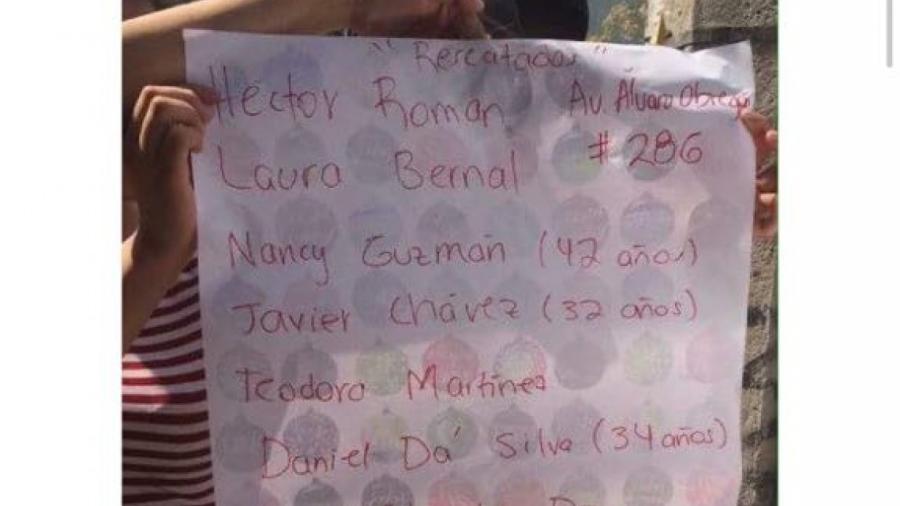 "Rescatados"
Héctor Roman Av. Álvaro Obregón
# 286
Laura Bernal
Nancy Guzmán (42 años)
Javier Chávez (32 años)
Teodoro Martínez
Daniel Dá Silva (34 años)